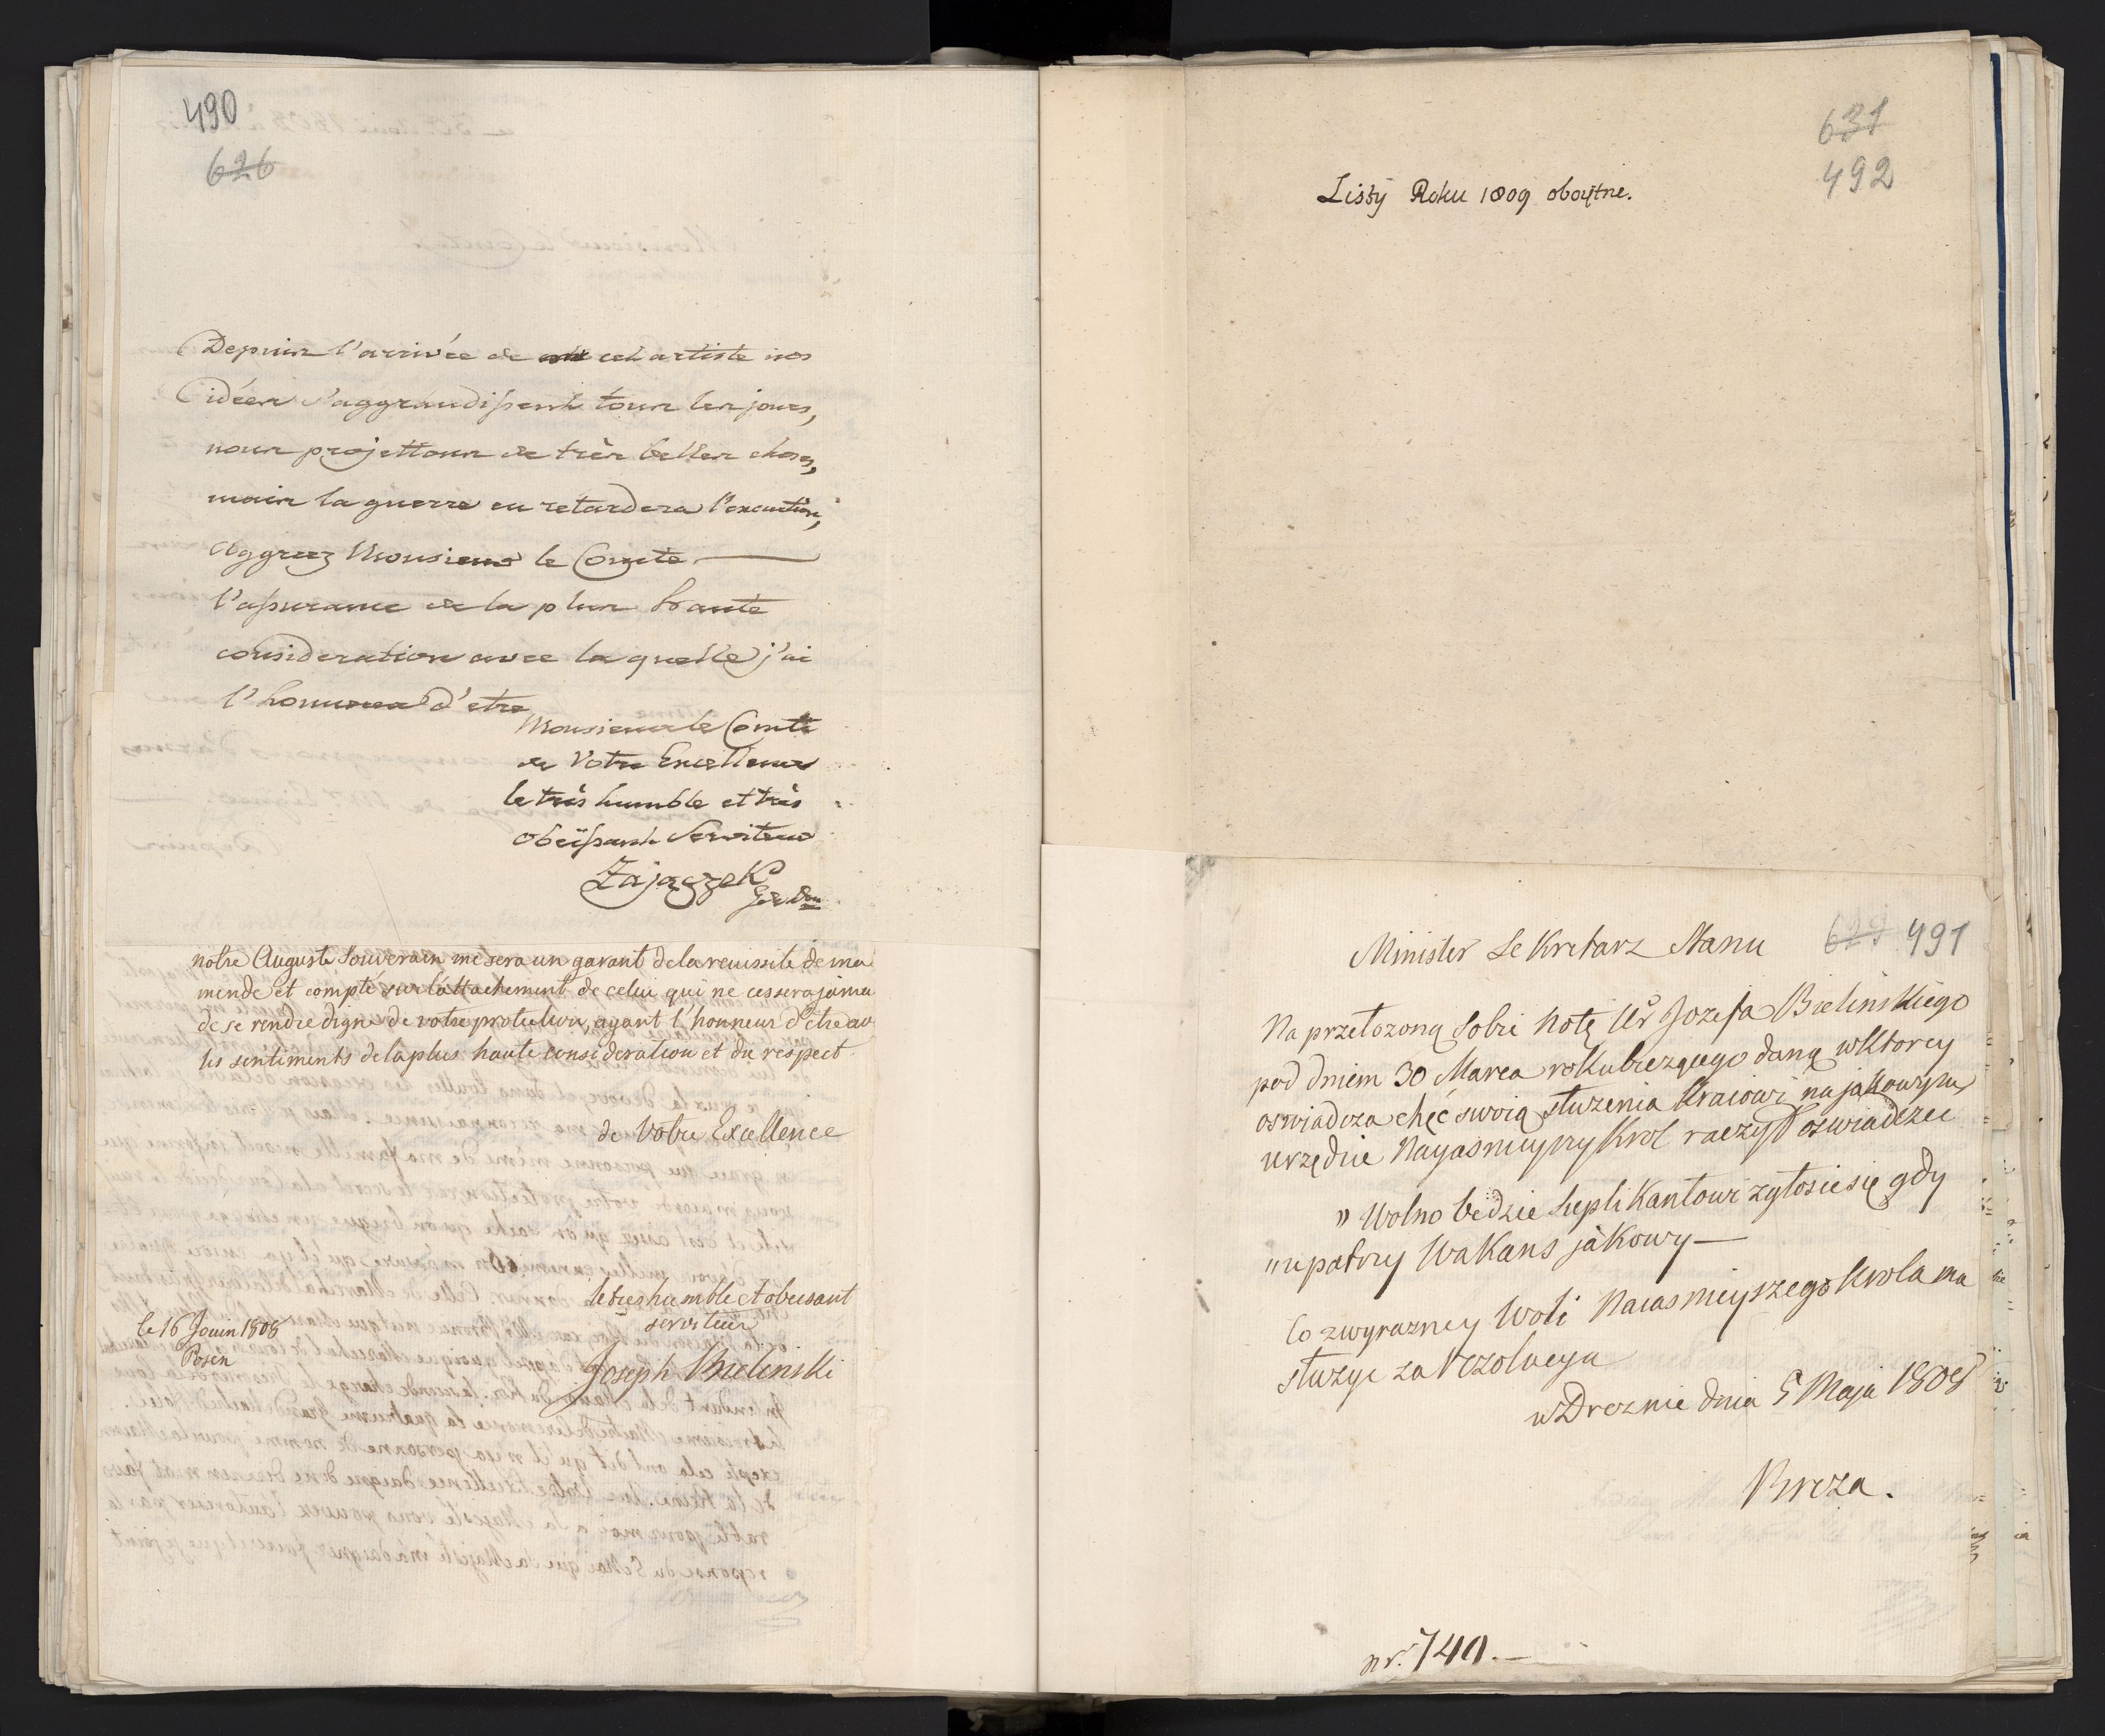 490
626
Depuis l'arrivée de cet artiste nos
idées s'aggrandissent tous les jours,
nous projettons de très belles choses,
mais la guerre en retardera l'execution,
Aggreez Monsieur le Comte
l'assurance de la plus haute
consideration avec la quelle j'ai
l'honneur d'etre
Monsieur le Comte
de Votre Excellence
le très humble et très
obeïssant Serviteur
Zajączek
notre Auguste Souverain me sera un garant de la reuissite de ma
mende et compté sur l'attachement de celui qui ne cessera jama
de se rendre digne de votre protection, ayant l'honneur d'etre av
les sentiments de la plus haute consideration et du respect
de Votre Excellence
le tres humble et obeisant
serviteur
le 16 Jouin 1808
Posen
Joseph Bielinski
631
492
Listy Roku 1809 oboiętne.
Minister Sekretarz Stanu
629 491
Na przełozoną Sobie Notę Ur Jozefa Bielinskiego
pod dniem 30 Marca roku biezącego daną w ktorey
oswiadcza chęć swoią słuzenia Kraiowi na jakowym
urzędzie Nayasnieyszy Krol raczył oswiadczec
" Wolno bedzie Suplikantowi zgłosic się gdy
" upatrzy Wakans jakowy —
Co z wyrazney Woli Naiasnieyszego Krola ma
słuzyc za rezolucyą
w Dreznie dnia 5 Maja 1808
Breza.
nr. 740. —